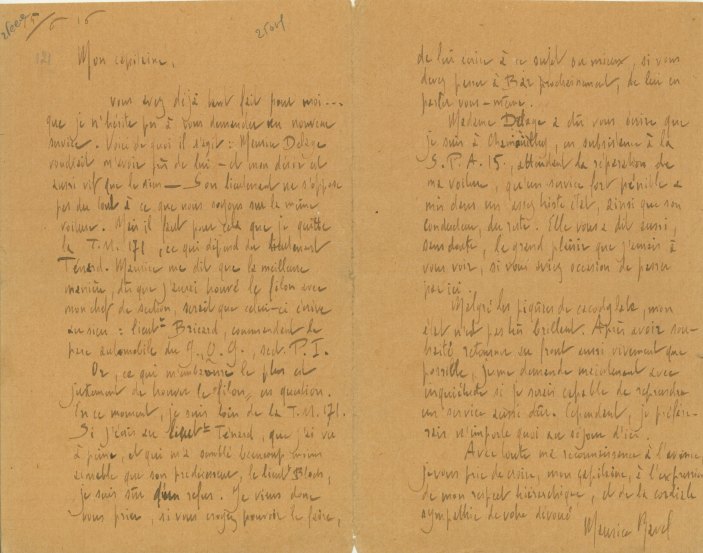 5/6 16
Mon capitaine,
vous avez déjà tant fait pour moi...
que je n'hésite pas à vous demander un nouveau
service. Voici de quoi il s'agit : Maurice Delage
voudrait m'avoir près de lui – et mon désir est
aussi vif que le sien – Son lieutenant ne s'oppose
pas du tout à ce que nous soyons sur la même
voiture. Mais il faut pour cela que je quitte
la T.M. 171, ce qui dépend du lieutenant
Ténard. Maurice me dit que la meilleure
manière, dès que j'aurai trouvé le filon avec
mon chef de section, serait que celui-ci écrive
au sien : lieut^t Bricard, commandant le
parc automobile du G.Q.G., sect. P.I.
Or, ce qui m'embarrasse le plus est
justement de trouver le filon en question.
En ce moment, je suis loin de la T.M. 171.
Si j'écris au lieut^t Ténard, que j'ai vu
à peine, et qui m'a semblé beaucoup moins
aimable que son prédécesseur, le lieut^t Bloch,
je suis sûr d'un refus. Je viens donc
vous prier, si vous croyez pouvoir le faire,
de lui écrire à ce sujet ou mieux, si vous
devez passer à Bar prochainement, de lui en
parler vous-même.
Madame Delage a dû vous écrire que
je suis à Chamouilley, en subsistance à la
S.P.A. 15, attendant la réparation de
ma voiture, qu'un service fort pénible a
mis dans un assez triste état, ainsi que son
conducteur, du reste. Elle vous a dit aussi,
sans doute, le grand plaisir que j'aurais à
vous voir, si vous aviez occasion de passer
par ici.
Malgré les piqûres de cacodylate, mon
état n'est pas très brillant. Après avoir sou-
haité retourner au front aussi vivement que
possible, je me demande maintenant avec
inquiétude si je serais capable de reprendre
un service aussi dur. Cependant, je préfère-
rais n'importe quoi au séjour d'ici.
Avec toute ma reconnaissance à l'avance,
je vous prie de croire, mon capitaine, à l'expression
de mon respect hiérarchique, et de la cordiale
sympathie de votre dévoué
Maurice Ravel